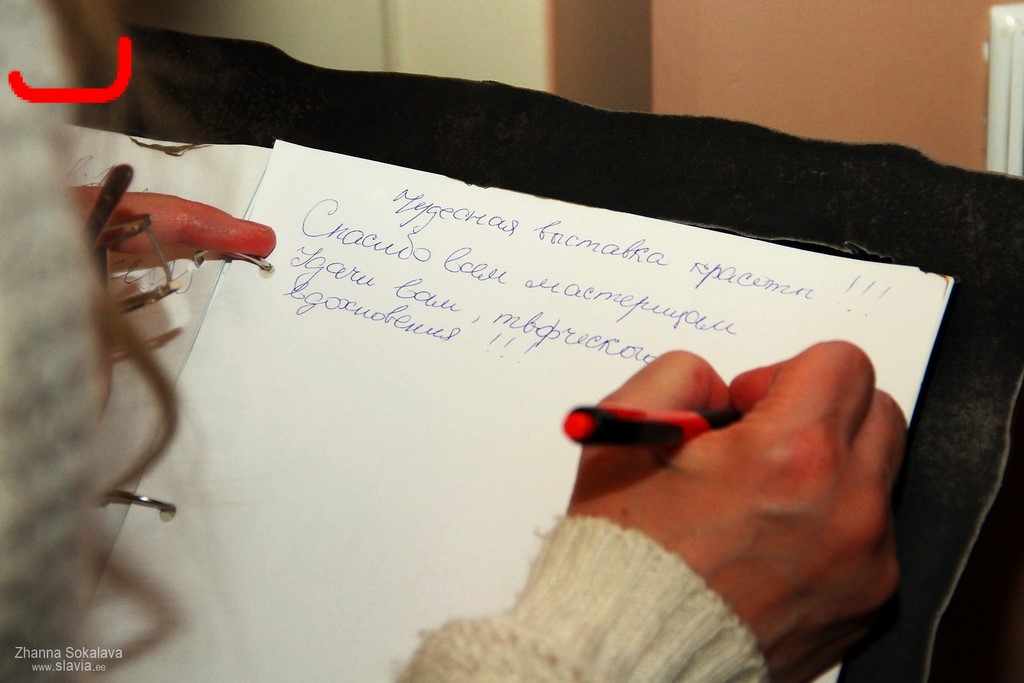 Чудесная выставка красоты !!!
Спасибо всем мастерицам
Удачи вам, творческого
вдохновения !!!
Zhanna Sokalava
www.slavia.ee